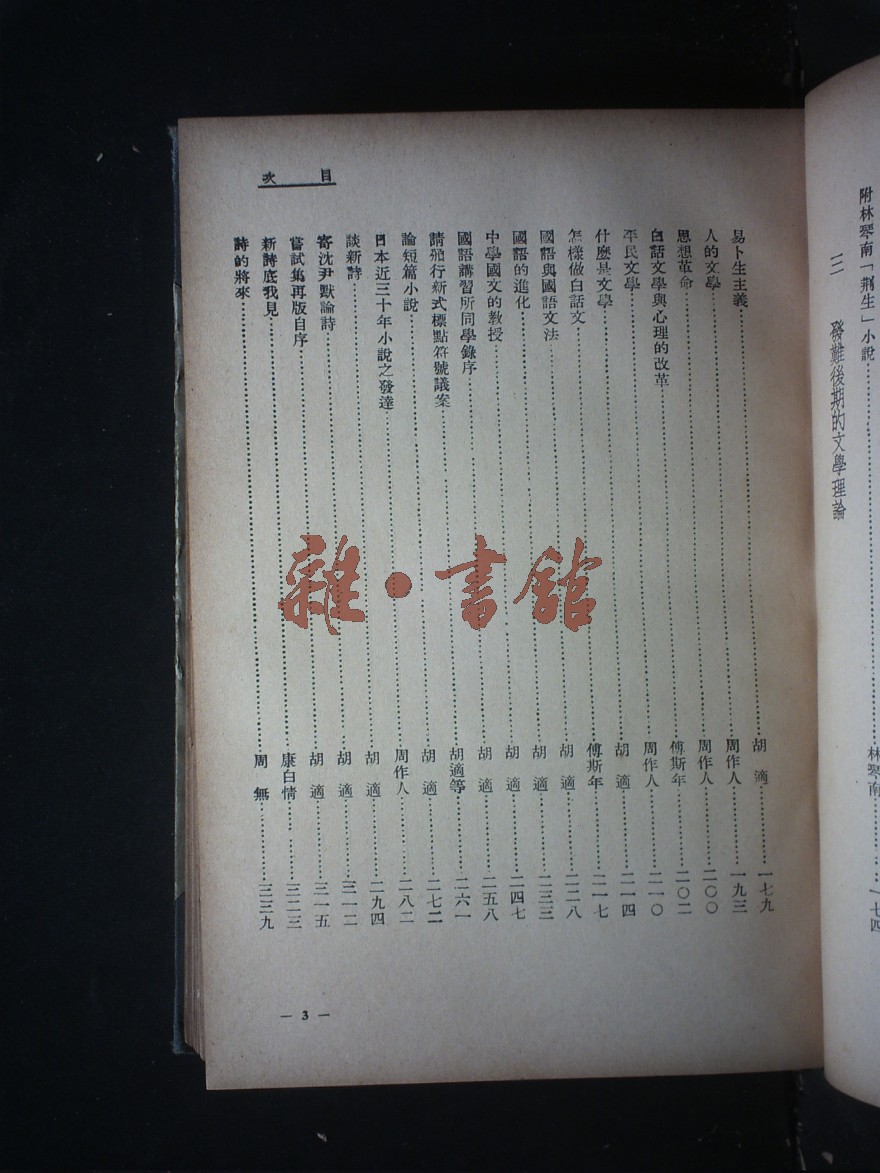 附林琴南「荊生」小說……林琴南……一七四
三 發難後期的文學理論
目次
易卜生主義……胡適……一七九
人的文學……周作人……一九三
思想革命……周作人……二〇〇
白話文學與心理的改革……傅斯年……二〇二
平民文學……周作人……二一〇
什麼是文學……胡適……二一四
怎樣做白話文……傅斯年……二一七
國語與國語文法……胡適……二二八
國語的進化……胡適……二三三
中學國文的教授……胡適……二四七
國語講習所同學錄序……胡適……二五八
請頒行新式標點符號議案……胡適等……二六一
論短篇小說……胡適……二七二
日本近三十年小說之發達……周作人……二八二
談新詩……胡適……二九四
寄沈尹默論詩……胡適……三一二
嘗試集再版自序……胡適……三一五
新詩底我見……康白情……三二三
詩的將來……周無……三三九
— 3 —
雜·書館